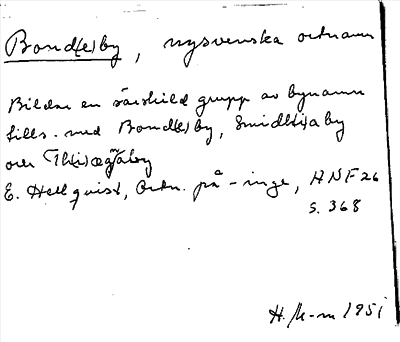 Bond(e)by, nysvenska ortnamn
Bildar en särskild grupp av bynamn
tills. med Bond(e)by, Smidh(i)aby
och
E. Hellquist, Ortn. på -inge, HNF 26
s. 368
H. 1951